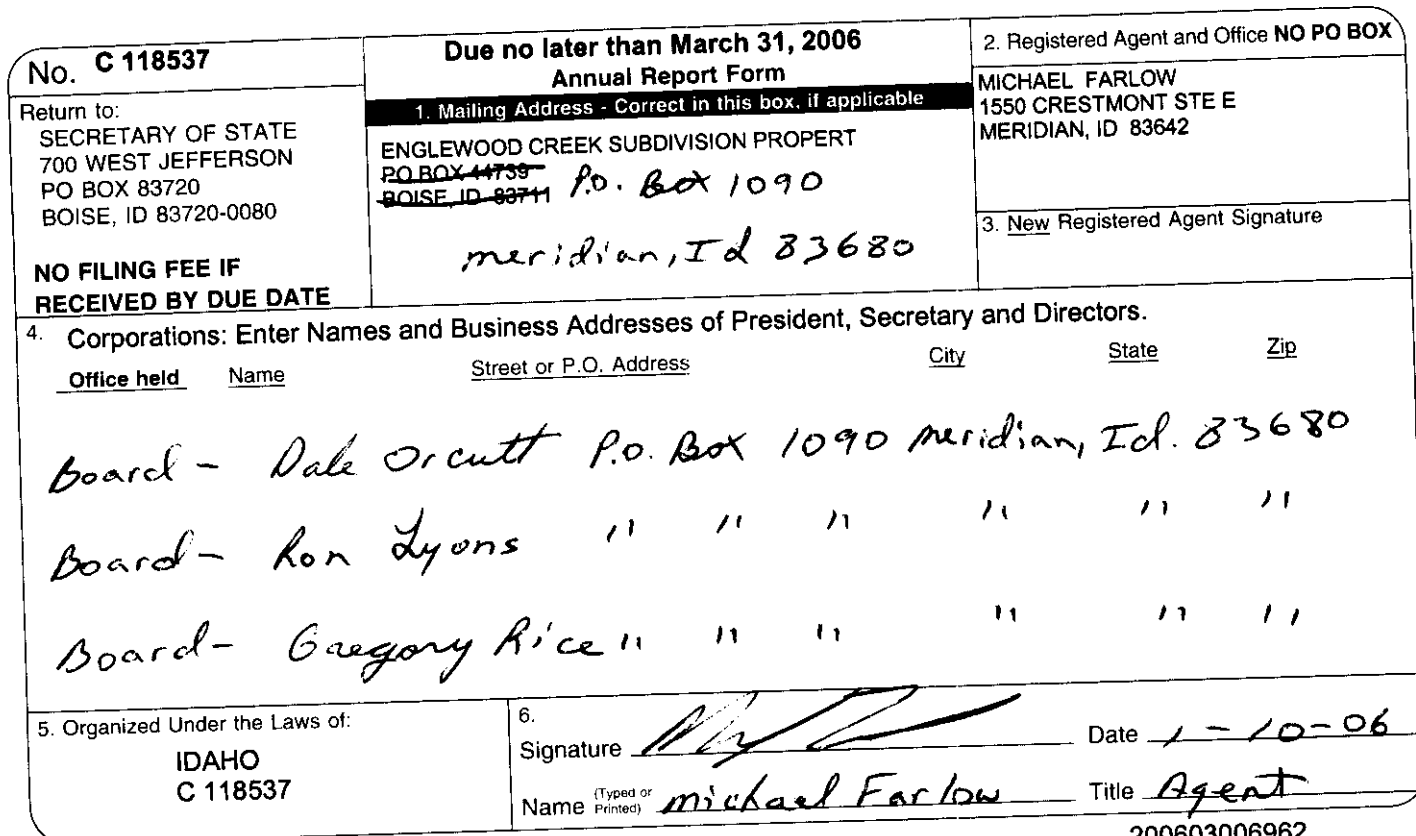 No. C 118537
Return to:
SECRETARY OF STATE
700 WEST JEFFERSON
PO BOX 83720
BOISE, ID 83720-0080
NO FILING FEE IF
RECEIVED BY DUE DATE
Due no later than March 31, 2006
Annual Report Form
1. Mailing Address - Correct in this box, if applicable
ENGLEWOOD CREEK SUBDIVISION PROPERT
PO BOX 44739
BOISE, ID 83711 P.O. Box 1090
meridian, Id 83680
2. Registered Agent and Office NO PO BOX
MICHAEL FARLOW
1550 CRESTMONT STE E
MERIDIAN, ID 83642
3. New Registered Agent Signature
4. Corporations: Enter Names and Business Addresses of President, Secretary and Directors.
Office held Name Street or P.O. Address City State Zip
Board - Dale Orcutt P.O. Box 1090 meridian, Id. 83680
Board - Ron Lyons " " " " " "
Board - Gregory Rice " " " " " "
5. Organized Under the Laws of:
IDAHO
C 118537
6.
Signature Date 1-10-06
Name (Typed or Printed) michael Farlow Title Agent
200603006962